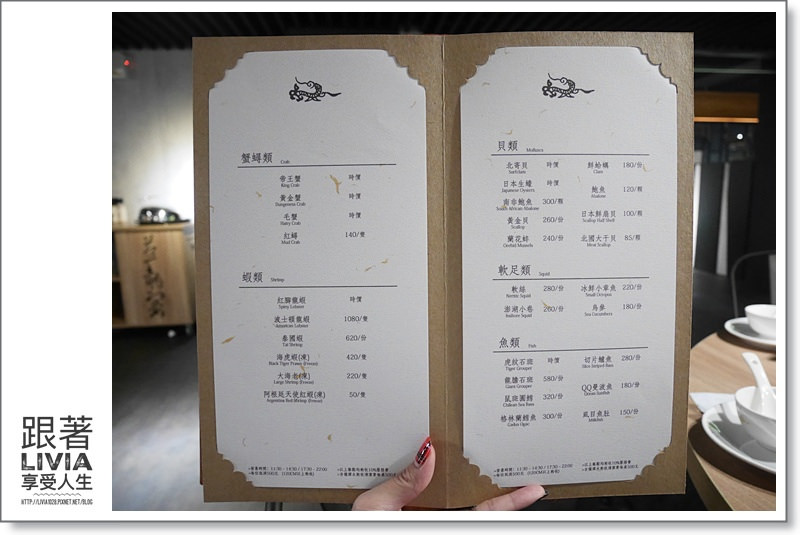 蟹蟳類 Crab
帝王蟹 時價
King Crab
黃金蟹 時價
Dungeness Crab
毛蟹 時價
Hairy Crab
紅蟳 140/隻
Mud Crab
蝦類 Shrimp
紅腳龍蝦 時價
Spiny Lobster
波士頓龍蝦 1080/隻
American Lobster
泰國蝦 620/份
Thai Shrimp
海虎蝦(凍) 420/隻
Black Tiger Prawn (Freeze)
大海老(凍) 220/隻
Large Shrimp (Freeze)
阿根廷天使紅蝦(凍) 50/隻
Argentina Red Shrimp (Freeze)
貝類 Molluscs
北寄貝 時價
Surfclam
日本生蠔 時價
Japanese Oysters
南非鮑魚 300/顆
South African Abalone
黃金貝 260/份
Scallop
蘭花蚌 240/份
Orchid Mussels
鮮蛤蠣 180/份
Clam
鮑魚 120/顆
Abalone
日本鮮扇貝 100/顆
Scallop Half Shell
北國大干貝 85/顆
Meat Scallop
軟足類 Squid
軟絲 280/份
澎湖小卷 260/份
冰鮮小章魚 220/份
Small Octopus
烏參 180/份
Sea Cucumbers
魚類 Fish
虎紋石斑 時價
Tiger Grouper
龍膽石斑 580/份
Giant Grouper
鼠斑圓鱈 320/份
Chilean Sea Bass
格林蘭鱈魚 300/份
切片鱸魚 280/份
QQ曼波魚 180/份
Ocean Sunfish
虱目魚肚 150/份
Milkfish
跟著
LIVIA
享受人生
HTTP://LIVIA1028.PIXNET.NET/BLOG